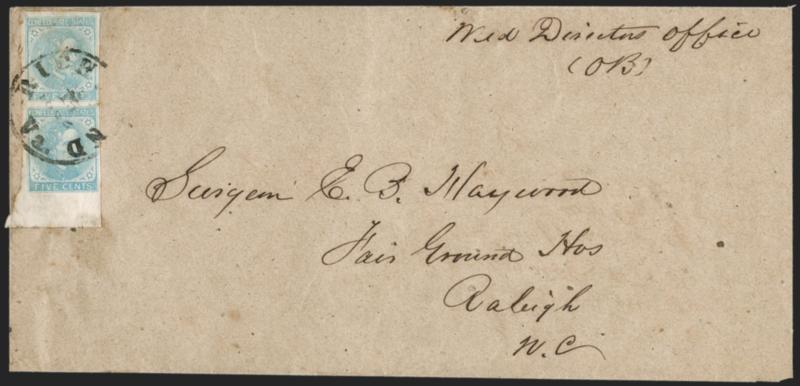 Med Directors Office
(OB)
CONFEDERATE STATES
FIVE CENTS
CONFEDERATE STATES
FIVE CENTS
Surgeon E. B. Haywood
Fair Ground Hos
Raleigh
N. C.